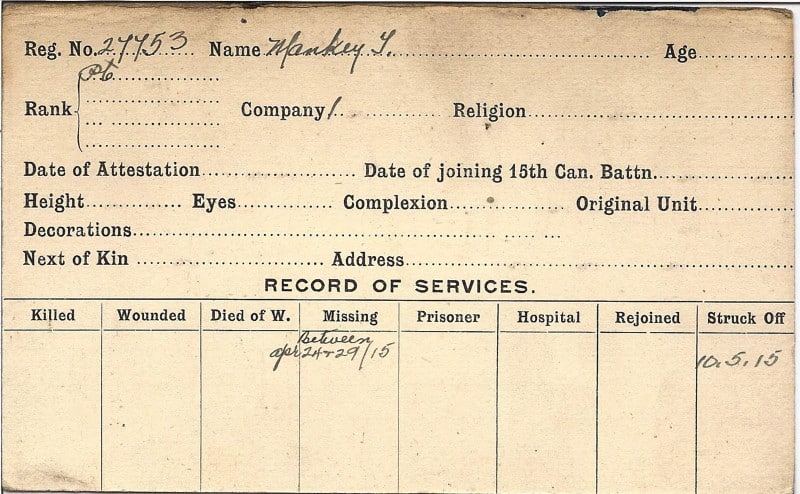 Reg. No. 27753 Name Mankey T. Age
Rank Pte Company 1. Religion
Date of Attestation Date of joining 15th Can. Battn.
Height Eyes Complexion Original Unit
Decorations
Next of Kin Address
RECORD OF SERVICES.
Killed Wounded Died of W. Missing Prisoner Hospital Rejoined Struck Off
Between
apr 24 + 29/15 10.5.15